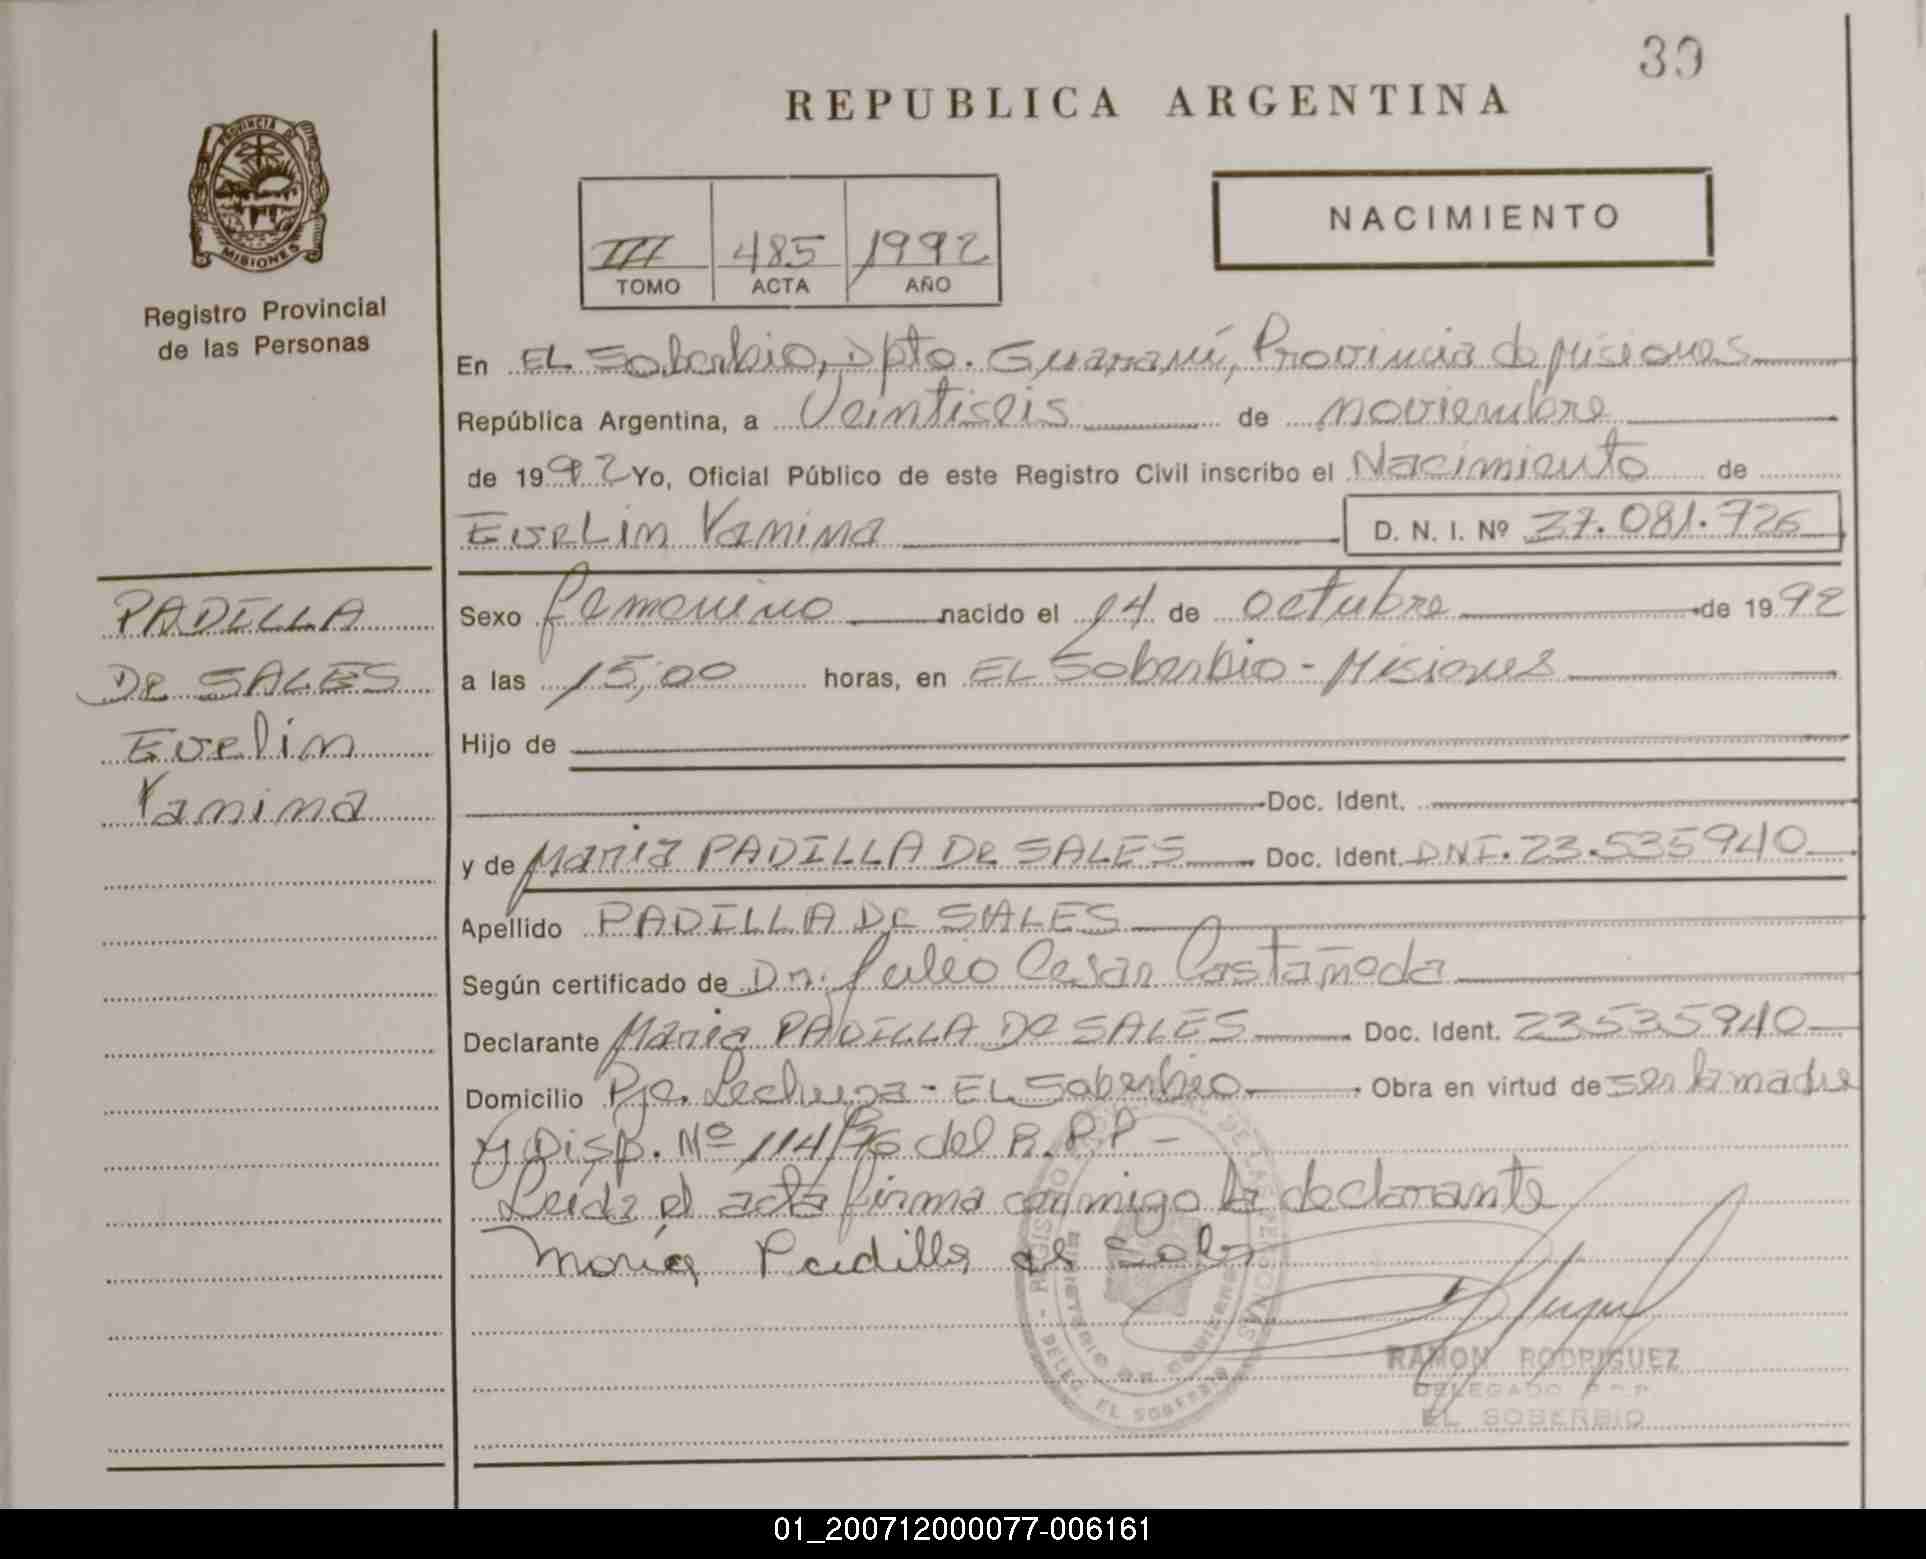 39
REPUBLICA ARGENTINA
PROVINCIA DE
MISIONES
Registro Provincial
de las Personas
III 485 1992
TOMO ACTA AÑO
NACIMIENTO
En EL Soberbio, Dpto. Guaraní, Provincia de Misiones
República Argentina, a Veintiseis de noviembre
de 1992 Yo, Oficial Público de este Registro Civil inscribo el Nacimiento de
Evelin Yanina D. N. I. Nº 37.081.726
PADILLA
De SALES
Evelin
Yanina
Sexo femenino nacido el 14 de octubre de 1992
a las 15,00 horas, en EL Soberbio - Misiones
Hijo de
Doc. Ident.
y de Maria PADILLA De SALES Doc. Ident. DNI. 23.535940
Apellido PADILLA De SALES
Según certificado de Dr. Julio Cesar Castañeda
Declarante Maria PADILLA De SALES Doc. Ident. 23535940
Domicilio Pje. Lechuza - EL Soberbio Obra en virtud de ser la madre
y Disp. Nº 114/90 del R.P.P -
Leida el acta firma conmigo la declarante
María Padilla de Sale
RAMON RODRIGUEZ
DELEGADO R P P
EL SOBERBIO
REGISTRO DE LAS PERSONAS
MINISTERIO DE GOBIERNO
DELEG. EL SOBERBIO
01_200712000077-006161